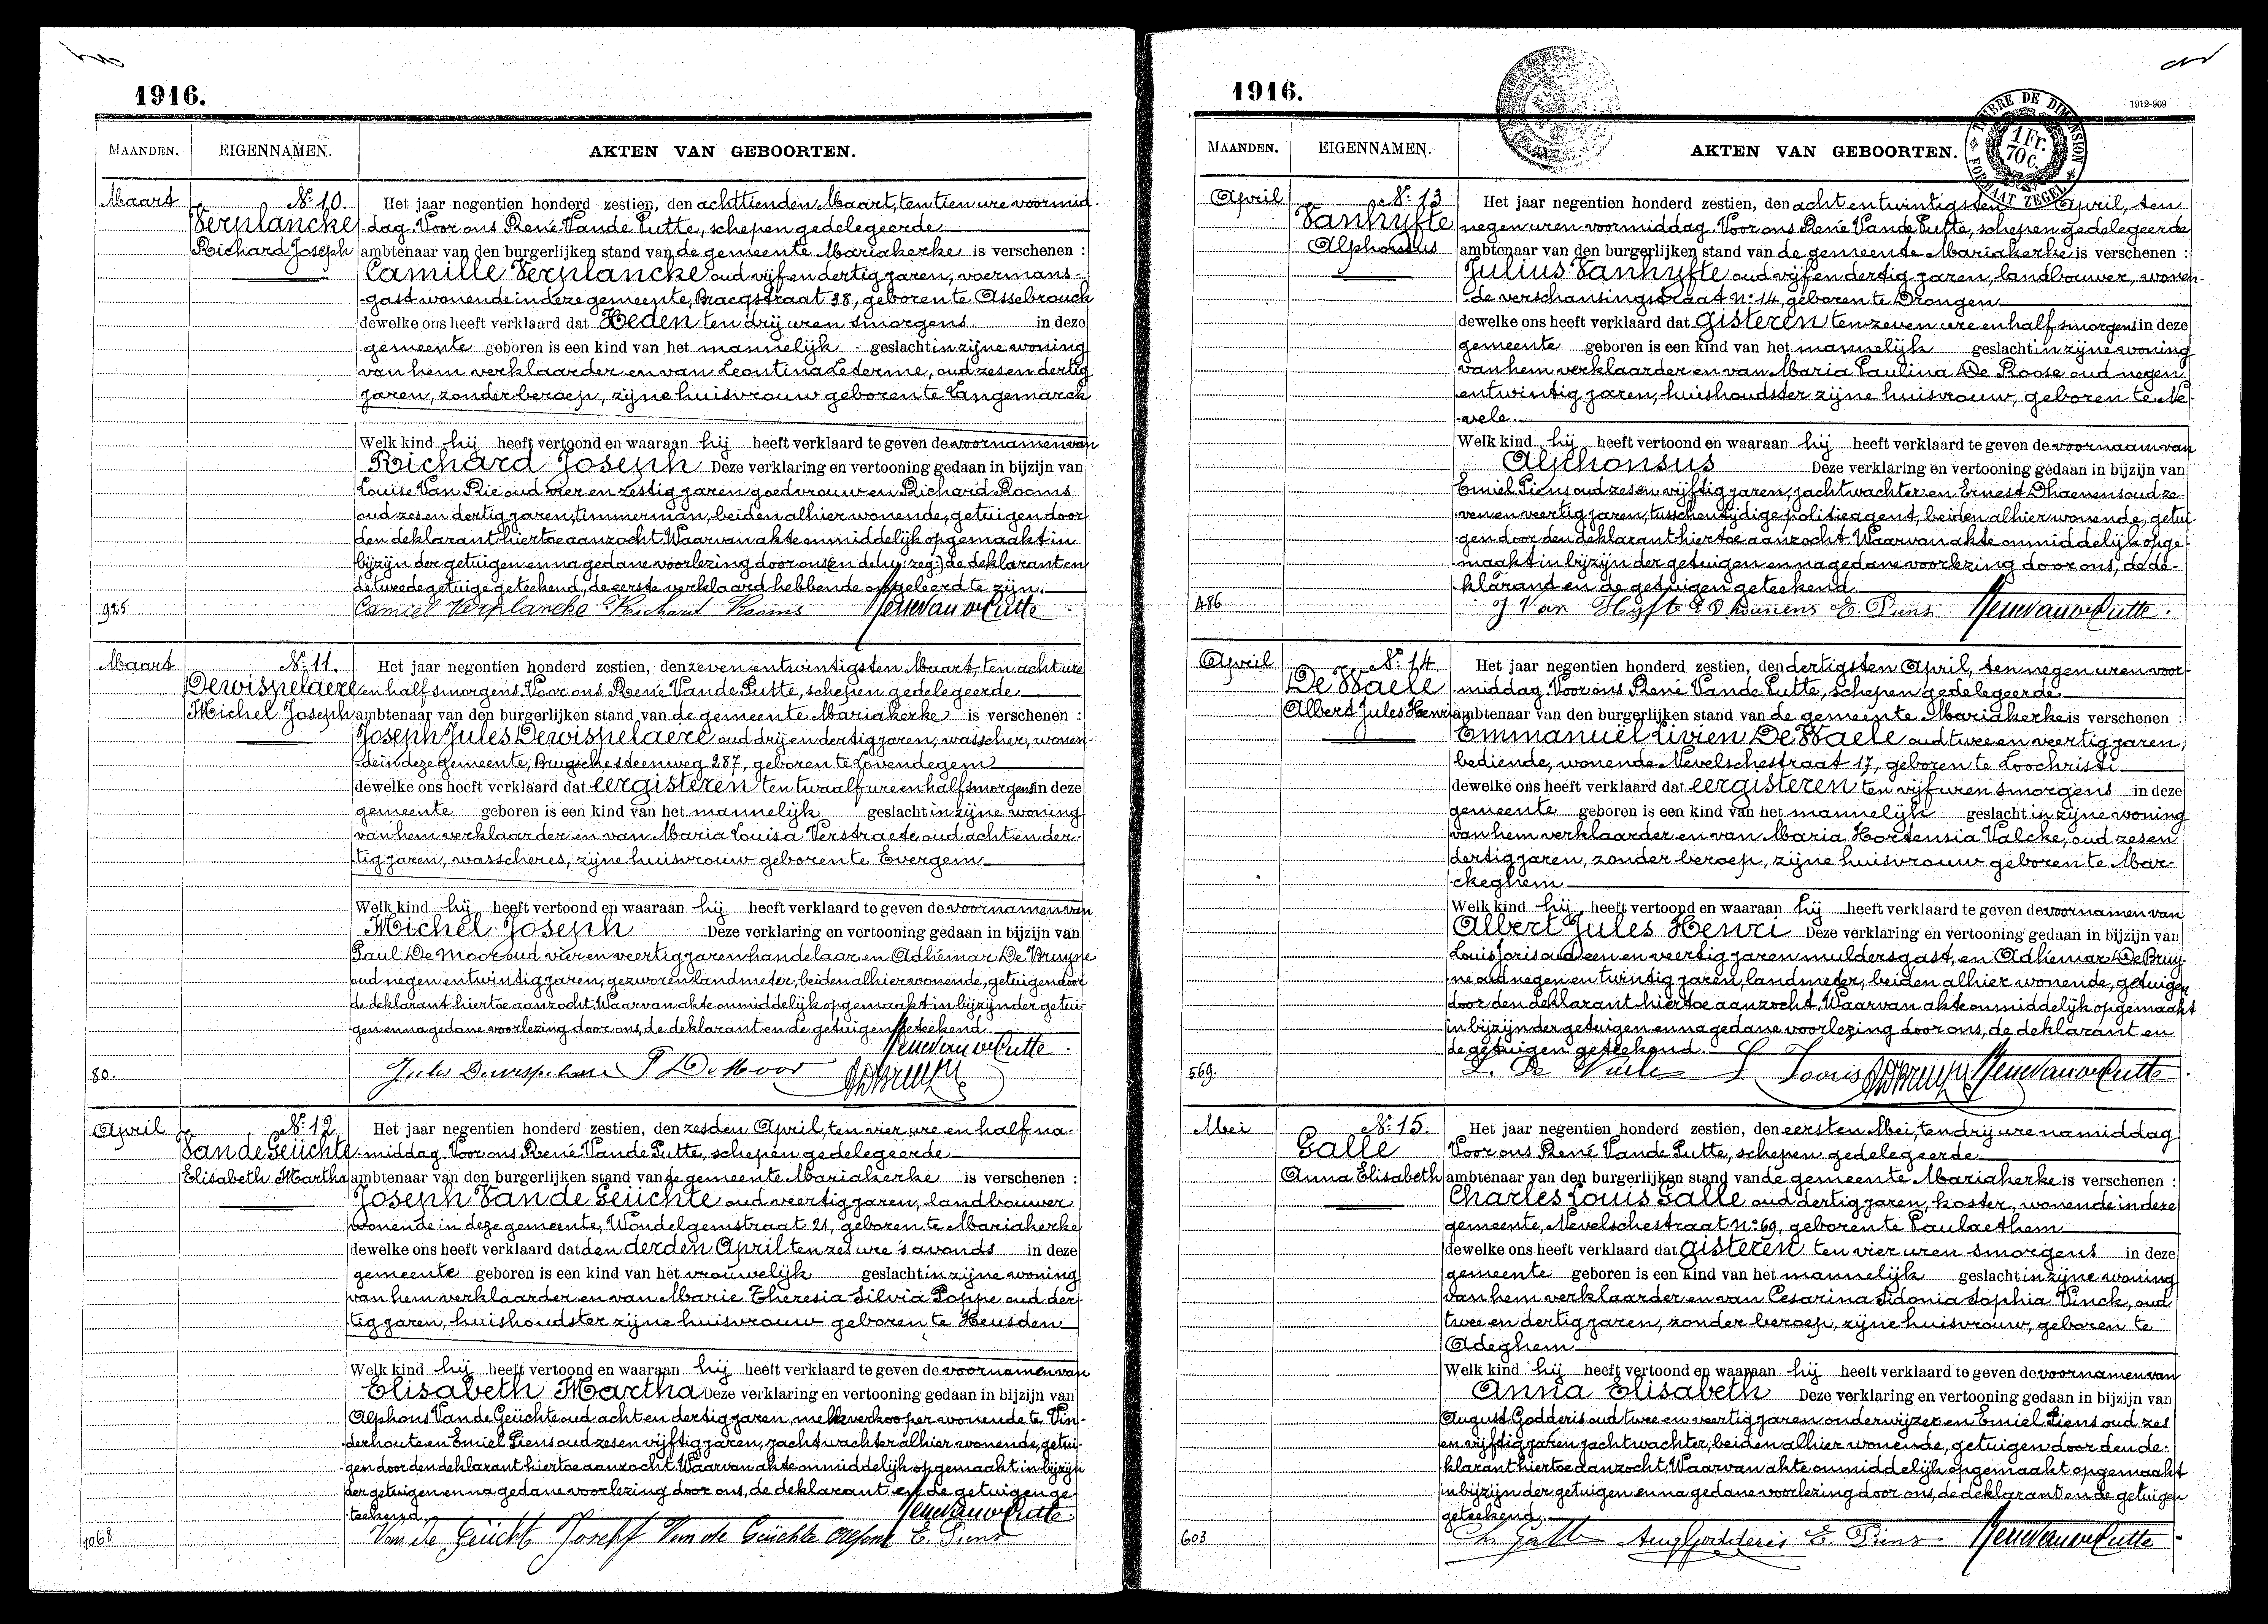 1916.
MAANDEN. EIGENNAMEN. AKTEN VAN GEBOORTEN.
Maart Nº 10. Het jaar negentien honderd zestien, den achttienden Maart, ten tien ure voormid-
Verplancke dag. Voor ons René Vande Putte, schepen gedelegeerde
Richard Joseph ambtenaar van den burgerlijken stand van de gemeente Mariakerke is verschenen :
Camille Verplancke oud vijf en dertig jaren, voermans-
gast wonende in deze gemeente, Bracqstraat 38, geboren te Assebrouck
dewelke ons heeft verklaard dat Heden ten drij uren smorgens in deze
gemeente geboren is een kind van het mannelijk geslacht in zijne woning
van hem verklaarder en van Leontina Lederme, oud zes en dertig
jaren, zonder beroep, zijne huisvrouw geboren te Langemarck
Welk kind hij heeft vertoond en waaraan hij heeft verklaard te geven de voornamen van
Richard Joseph Deze verklaring en vertooning gedaan in bijzijn van
Louise Van Rie oud vier en zestig jaren goedvrouw en Richard Rooms
oud zes en dertig jaren, timmerman, beiden alhier wonende, getuigen door
den deklarant hiertoe aanzocht. Waarvan akte onmiddelijk opgemaakt in
bijzijn der getuigen en na gedane voorlezing door ons de deklarant en
de tweede getuige geteekend, de eerste verklaard hebbende ongeleerd te zijn.
925 Camiel Verplancke Richard Rooms René Van de Putte
Maart Nº 11. Het jaar negentien honderd zestien, den zeven en twintigsten Maart, ten acht ure
Dewispelaere en half smorgens. Voor ons René Vande Putte, schepen gedelegeerde
Michel Joseph ambtenaar van den burgerlijken stand van de gemeente Mariakerke is verschenen :
Joseph Jules Dewispelaere oud drij en dertig jaren, wasscher, wonen-
de in deze gemeente, Brugsche steenweg 287, geboren te Lovendegem
dewelke ons heeft verklaard dat eergisteren ten twaalf ure en half smorgens in deze
gemeente geboren is een kind van het mannelijk geslacht in zijne woning
van hem verklaarder en van Maria Louisa Verstraete oud acht en der-
tig jaren, wasscheres, zijne huisvrouw geboren te Evergem
Welk kind hij heeft vertoond en waaraan hij heeft verklaard te geven de voornamen van
Michel Joseph Deze verklaring en vertooning gedaan in bijzijn van
Paul De Moor oud vier en veertig jaren handelaar en Adhémar De Bruyne
oud negen en twintig jaren, gezworen landmeter, beiden alhier wonende, getuigen door
de deklarant hiertoe aanzocht. Waarvan akte onmiddelijk opgemaakt in bijzijn der getui-
gen en na gedane voorlezing door ons, de deklarant en de getuigen geteekend.
René Van de Putte
80. Jules Dewispelaere P De Moor AD Bruyne
April Nº 12 Het jaar negentien honderd zestien, den zesden April, ten vier ure en half na-
Van de Geüchte middag. Voor ons René Vande Putte, schepen gedelegeerde
Elisabeth Martha ambtenaar van den burgerlijken stand van de gemeente Mariakerke is verschenen :
Joseph Van de Geüchte oud veertig jaren, landbouwer
wonende in deze gemeente, Wondelgemstraat 21, geboren te Mariakerke
dewelke ons heeft verklaard dat den derden April ten zes ure 's avonds in deze
gemeente geboren is een kind van het vrouwelijk geslacht in zijne woning
van hem verklaarder en van Marie Theresia Silvia Poppe oud der-
tig jaren, huishoudster zijne huisvrouw geboren te Heusden
Welk kind hij heeft vertoond en waaraan hij heeft verklaard te geven de voornamen van
Elisabeth Martha Deze verklaring en vertooning gedaan in bijzijn van
Alphons Van de Geüchte oud acht en dertig jaren, melkverkooper wonende te Vin-
derhoute en Emiel Piens oud zes en vijftig jaren, jachtwachter alhier wonende, getui-
gen door den deklarant hiertoe aanzocht. Waarvan akte onmiddelijk opgemaakt in bijzijn
der getuigen en na gedane voorlezing door ons, de deklarant en de getuigen ge-
teekend. René Van de Putte
1068 Van de Geücht Joseph Van de Geüchte Alfons E. Piens
1916.
1912-909
TIMBRE DE DIMENSION
1 Fr.
70 C.
FORMAAT ZEGEL
MAANDEN. EIGENNAMEN. AKTEN VAN GEBOORTEN.
April Nº 13 Het jaar negentien honderd zestien, den acht en twintigsten April, ten
Vanhyfte negen uren voormiddag. Voor ons René Vande Putte, schepen gedelegeerde
Alphonsus ambtenaar van den burgerlijken stand van de gemeente Mariakerke is verschenen :
Julius Vanhyfte oud vijf en dertig jaren, landbouwer, wonen-
de verschansingstraat nº 14, geboren te Drongen
dewelke ons heeft verklaard dat gisteren ten zeven ure en half smorgens in deze
gemeente geboren is een kind van het mannelijk geslacht in zijne woning
van hem verklaarder en van Maria Paulina De Roose oud negen
en twintig jaren, huishoudster zijne huisvrouw, geboren te Ne-
vele.
Welk kind hij heeft vertoond en waaraan hij heeft verklaard te geven de voornaam van
Alphonsus Deze verklaring en vertooning gedaan in bijzijn van
Emiel Piens oud zes en vijftig jaren, jachtwachter en Ernest Dhaenens oud ze-
ven en veertig jaren, tusschentijdige politieagent, beiden alhier wonende, getui-
gen door den deklarant hiertoe aanzocht. Waarvan akte onmiddelijk opge-
maakt in bijzijn der getuigen en na gedane voorlezing door ons, de de-
klarand en de getuigen geteekend.
486 J Van Hyfte E Dhaenens E. Piens René Van de Putte
April Nº 14. Het jaar negentien honderd zestien, den dertigsten April, ten negen uren voor-
De Waele middag. Voor ons René Vande Putte, schepen gedelegeerde
Albert Jules Henri ambtenaar van den burgerlijken stand van de gemeente Mariakerke is verschenen :
Emmanuël Livien De Waele oud twee en veertig jaren,
bediende, wonende Nevelschestraat 17, geboren te Loochristi
dewelke ons heeft verklaard dat eergisteren ten vijf uren smorgens in deze
gemeente geboren is een kind van het mannelijk geslacht in zijne woning
van hem verklaarder en van Maria Hortensia Valcke, oud zes en
dertig jaren, zonder beroep, zijne huisvrouw geboren te Mar-
ckeghem
Welk kind hij heeft vertoond en waaraan hij heeft verklaard te geven de voornamen van
Albert Jules Henri Deze verklaring en vertooning gedaan in bijzijn van
Louis Joris oud een en veertig jaren muldersgast, en Adhémar De Bruy-
ne oud negen en twintig jaren, landmeter, beiden alhier wonende, getuigen
door den deklarant hiertoe aanzocht. Waarvan akte onmiddelijk opgemaakt
in bijzijn der getuigen en na gedane voorlezing door ons, de deklarant en
de getuigen geteekend.
569. L. De Waele L Jooris AD Bruyne René Van de Putte
Mei Nº 15. Het jaar negentien honderd zestien, den eersten Mei, ten drij ure namiddag
Galle Voor ons René Vande Putte, schepen gedelegeerde
Anna Elisabeth ambtenaar van den burgerlijken stand van de gemeente Mariakerke is verschenen :
Charles Louis Galle oud dertig jaren, koster, wonende in deze
gemeente, Nevelschestraat nº 69, geboren te Paulaethem
dewelke ons heeft verklaard dat gisteren ten vier uren smorgens in deze
gemeente geboren is een kind van het mannelijk geslacht in zijne woning
van hem verklaarder en van Cesarina Sidonia Sophia Vinck, oud
twee en dertig jaren, zonder beroep, zijne huisvrouw, geboren te
Adeghem
Welk kind hij heeft vertoond en waaraan hij heeft verklaard te geven de voornamen van
Anna Elisabeth Deze verklaring en vertooning gedaan in bijzijn van
August Godderis oud twee en veertig jaren onderwijzer en Emiel Piens oud zes
en vijftig jaren jachtwachter, beiden alhier wonende, getuigen door den de-
klarant hiertoe aanzocht. Waarvan akte onmiddelijk opgemaakt opgemaakt
in bijzijn der getuigen en na gedane voorlezing door ons, de deklarant en de getuigen
geteekend.
603 Ch. Galle Aug Godderis E. Piens René Van de Putte